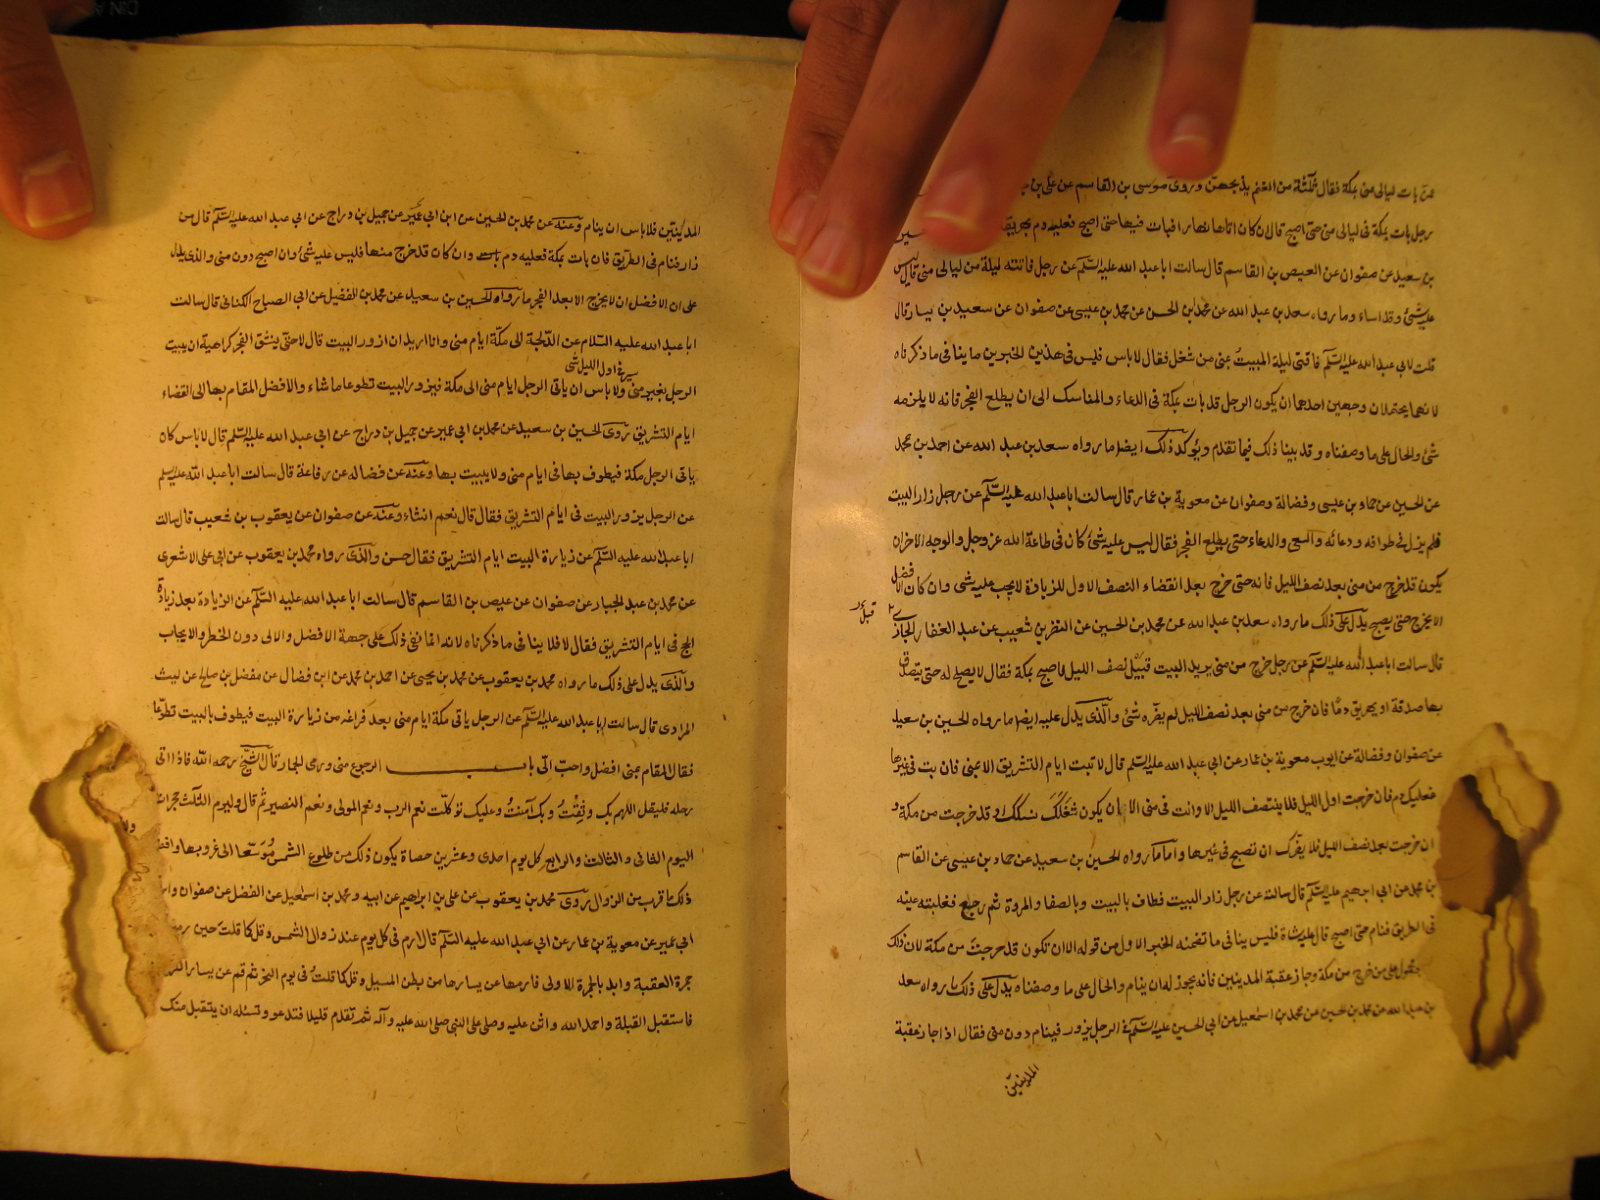 عمن بات ليالي منى بمكة فقال ثلثة من الغنم يذبحهن وروى موسى بن القاسم عن علي بن
رجل بات بمكة في ليالي منى حتى اصبح قال ان كان اتاها نهارا فبات فيها حتى اصبح فعليه دم يهريقه
بن سعيد عن صفوان عن العيص بن القاسم قال سالت ابا عبد الله عليه السّلم عن رجل فاتته ليلة من ليالي منى قال ليس
عليه شئ وقد اساء وما رواه سعد بن عبد الله عن محمد بن الحسن عن محمد بن عيسى عن صفوان عن سعيد بن يسار قال
قلت لابي عبد الله عليه السّلم فاتتني ليلة المبيت بمنى من شغل فقال لا باس فليس في هذين الخبرين ما ينافي ما ذكرناه
لانهما يحتملان وجهين احدهما ان يكون الرجل قد بات بمكة في الدعاء والمناسك الى ان يطلع الفجر فانه لا يلزمه
شئ والحال على ما وصفناه وقد بينا ذلك فيما تقدم ويؤكد ذلك ايضا ما رواه سعد بن عبد الله عن احمد بن محمد
عن الحسين عن حماد بن عيسى وفضالة وصفوان عن معوية بن عمار قال سالت ابا عبد الله عليه السّلم عن رجل زار البيت
فلم يزل في طوافه ودعائه والسعي والدعاء حتى يطلع الفجر فقال ليس عليه شئ كان في طاعة الله عز وجل والوجه الاخر ان
يكون قد خرج من منى بعد نصف الليل فانه متى خرج بعد انقضاء النصف الاول للزيارة لا يجب عليه شئ وان كان الافضل
الا يخرج حتى يصبح يدل على ذلك ما رواه سعد بن عبد الله عن محمد بن الحسين عن النضر بن شعيب عن عبد الغفار الجازي
قال سالت ابا عبد الله عليه السّلم عن رجل خرج من منى يريد البيت قبيل نصف الليل فاصبح بمكة فقال لا يصلح له حتى يتصدق
بها صدقة او يهريق دمًا فان خرج من منى بعد نصف الليل لم يضره شئ والّذى يدل عليه ايضا ما رواه الحسين بن سعيد
عن صفوان وفضالة عن ايوب معوية بن عمار عن ابي عبد الله عليه السّلم قال لا تبت ايام التشريق الا بمنى فان بت في غيرها
فعليك دم فان خرجت اول الليل فلا ينتصف الليل الا وانت في منى الا ان يكون شغلك نسكك او قد خرجت من مكة و
ان خرجت بعد نصف الليل فلا يضرك ان تصبح في غيرها واما ما رواه الحسين بن سعيد عن حماد بن عيسى عن القاسم
بن محمد عن ابي ابرهيم عليه السّلم قال سالته عن رجل زار البيت فطاف بالبيت وبالصفا والمروة ثم رجع فغلبته عينه
في الطريق فنام حتى اصبح قال عليه شاة فليس ينافي ما تضمنه الخبر الاول من قوله الا ان تكون قد خرجت من مكة لان ذلك
محمول على من خرج من مكة وجاز عقبة المدنيين فانه يجوز له ان ينام والحال على ما وصفناه يدل على ذلك ما رواه سعد
بن عبد الله عن محمد بن الحسين عن محمد بن اسمعيل عن ابي الحسن عليه السّلم في الرجل يزور فينام دون منى فقال اذا جاز عقبة
المدنيين
المدنيين فلا باس ان ينام وعنه عن محمد بن الحسين عن ابن ابي عمير عن جميل بن دراج عن ابي عبد الله عليه السّلم قال من
زار فنام في الطريق فان بات بمكة فعليه دم وان كان قد خرج منها فليس عليه شئ وان اصبح دون منى والذي يدل
على ان الافضل ان لا يخرج الا بعد الفجر ما رواه الحسين بن سعيد عن محمد بن الفضيل عن ابي الصباح الكناني قال سالت
ابا عبد الله عليه السّلام عن الدّلجة الى مكّة ايام منى وانا اريد ان ازور البيت قال لا حتى ينشق الفجر كراهية ان يبيت
الرجل بغير منى ولا باس ان ياتي الرجل ايام منى الى مكة فيزور البيت تطوعا ما شاء والافضل المقام بها الى انقضاء
ايام التشريق روى الحسين بن سعيد عن محمد بن ابي عمير عن جميل بن دراج عن ابي عبد الله عليه السّلم قال لا باس كان
ياتي الرجل مكة فيطوف بها في ايام منى ولا يبيت بها وعنه عن فضاله عن رفاعة قال سالت ابا عبد الله عليه السلم
عن الرجل يزور البيت في ايام التشريق فقال نعم ان شاء وعنه عن صفوان عن يعقوب بن شعيب قال سالت
ابا عبد الله عليه السّلم عن زيارة البيت ايام التشريق فقال حسن والّذى رواه محمد بن يعقوب عن ابي على الاشعرى
عن محمد بن عبد الجبار عن صفوان عن عيص بن القاسم قال سالت ابا عبد الله عليه السّلم عن الزيادة بعد زيارة
الحج في ايام التشريق فقال لا فلا ينافي ما ذكرناه لانه انما نفي ذلك على جهة الافضل والاولى دون الحظر والايجاب
والّذى يدل على ذلك ما رواه محمد بن يعقوب عن محمد بن يحيى عن احمد بن محمد عن ابن فضال عن مفضل بن صالح عن ليث
المرادى قال سالت ابا عبد الله عليه السّلم عن الرجل ياتى مكة ايام منى بعد فراغه من زيارة البيت فيطوف بالبيت تطوّعا
فقال المقام بمنى افضل واحبّ الىّ باب الرجوع من منى ورمى الجمار قال الشيخ رحمه الله فاذا اتى
رحله فليقل اللهم بك وثقت وبك آمنت وعليك توكّلت نعم الرب ونعم المولى ونعم النصير ثم قال وليرم الثلث جمرات
اليوم الثاني والثالث والرابع كل يوم احدى وعشرين حصاة يكون ذلك من طلوع الشمس موسّعا الى غروبها وافضل
ذلك ما قرب من الزوال روى محمد بن يعقوب عن علي بن ابرهيم عن ابيه ومحمد بن اسمعيل عن الفضل عن صفوان وابن
ابي عمير عن معوية بن عمار عن ابي عبد الله عليه السّلم قال ارم في كل يوم عند زوال الشمس وقل كما قلت حين رميت
جمرة العقبة وابدا بالجمرة الاولى فارمها عن يسارها من بطن المسيل وقل كما قلت في يوم النحر ثم قم عن يسار
فاستقبل القبلة واحمد الله واثن عليه وصلى على النبي صلى الله عليه وآله ثم تقدم قليلا فتدعو وتسئله ان يتقبل منك